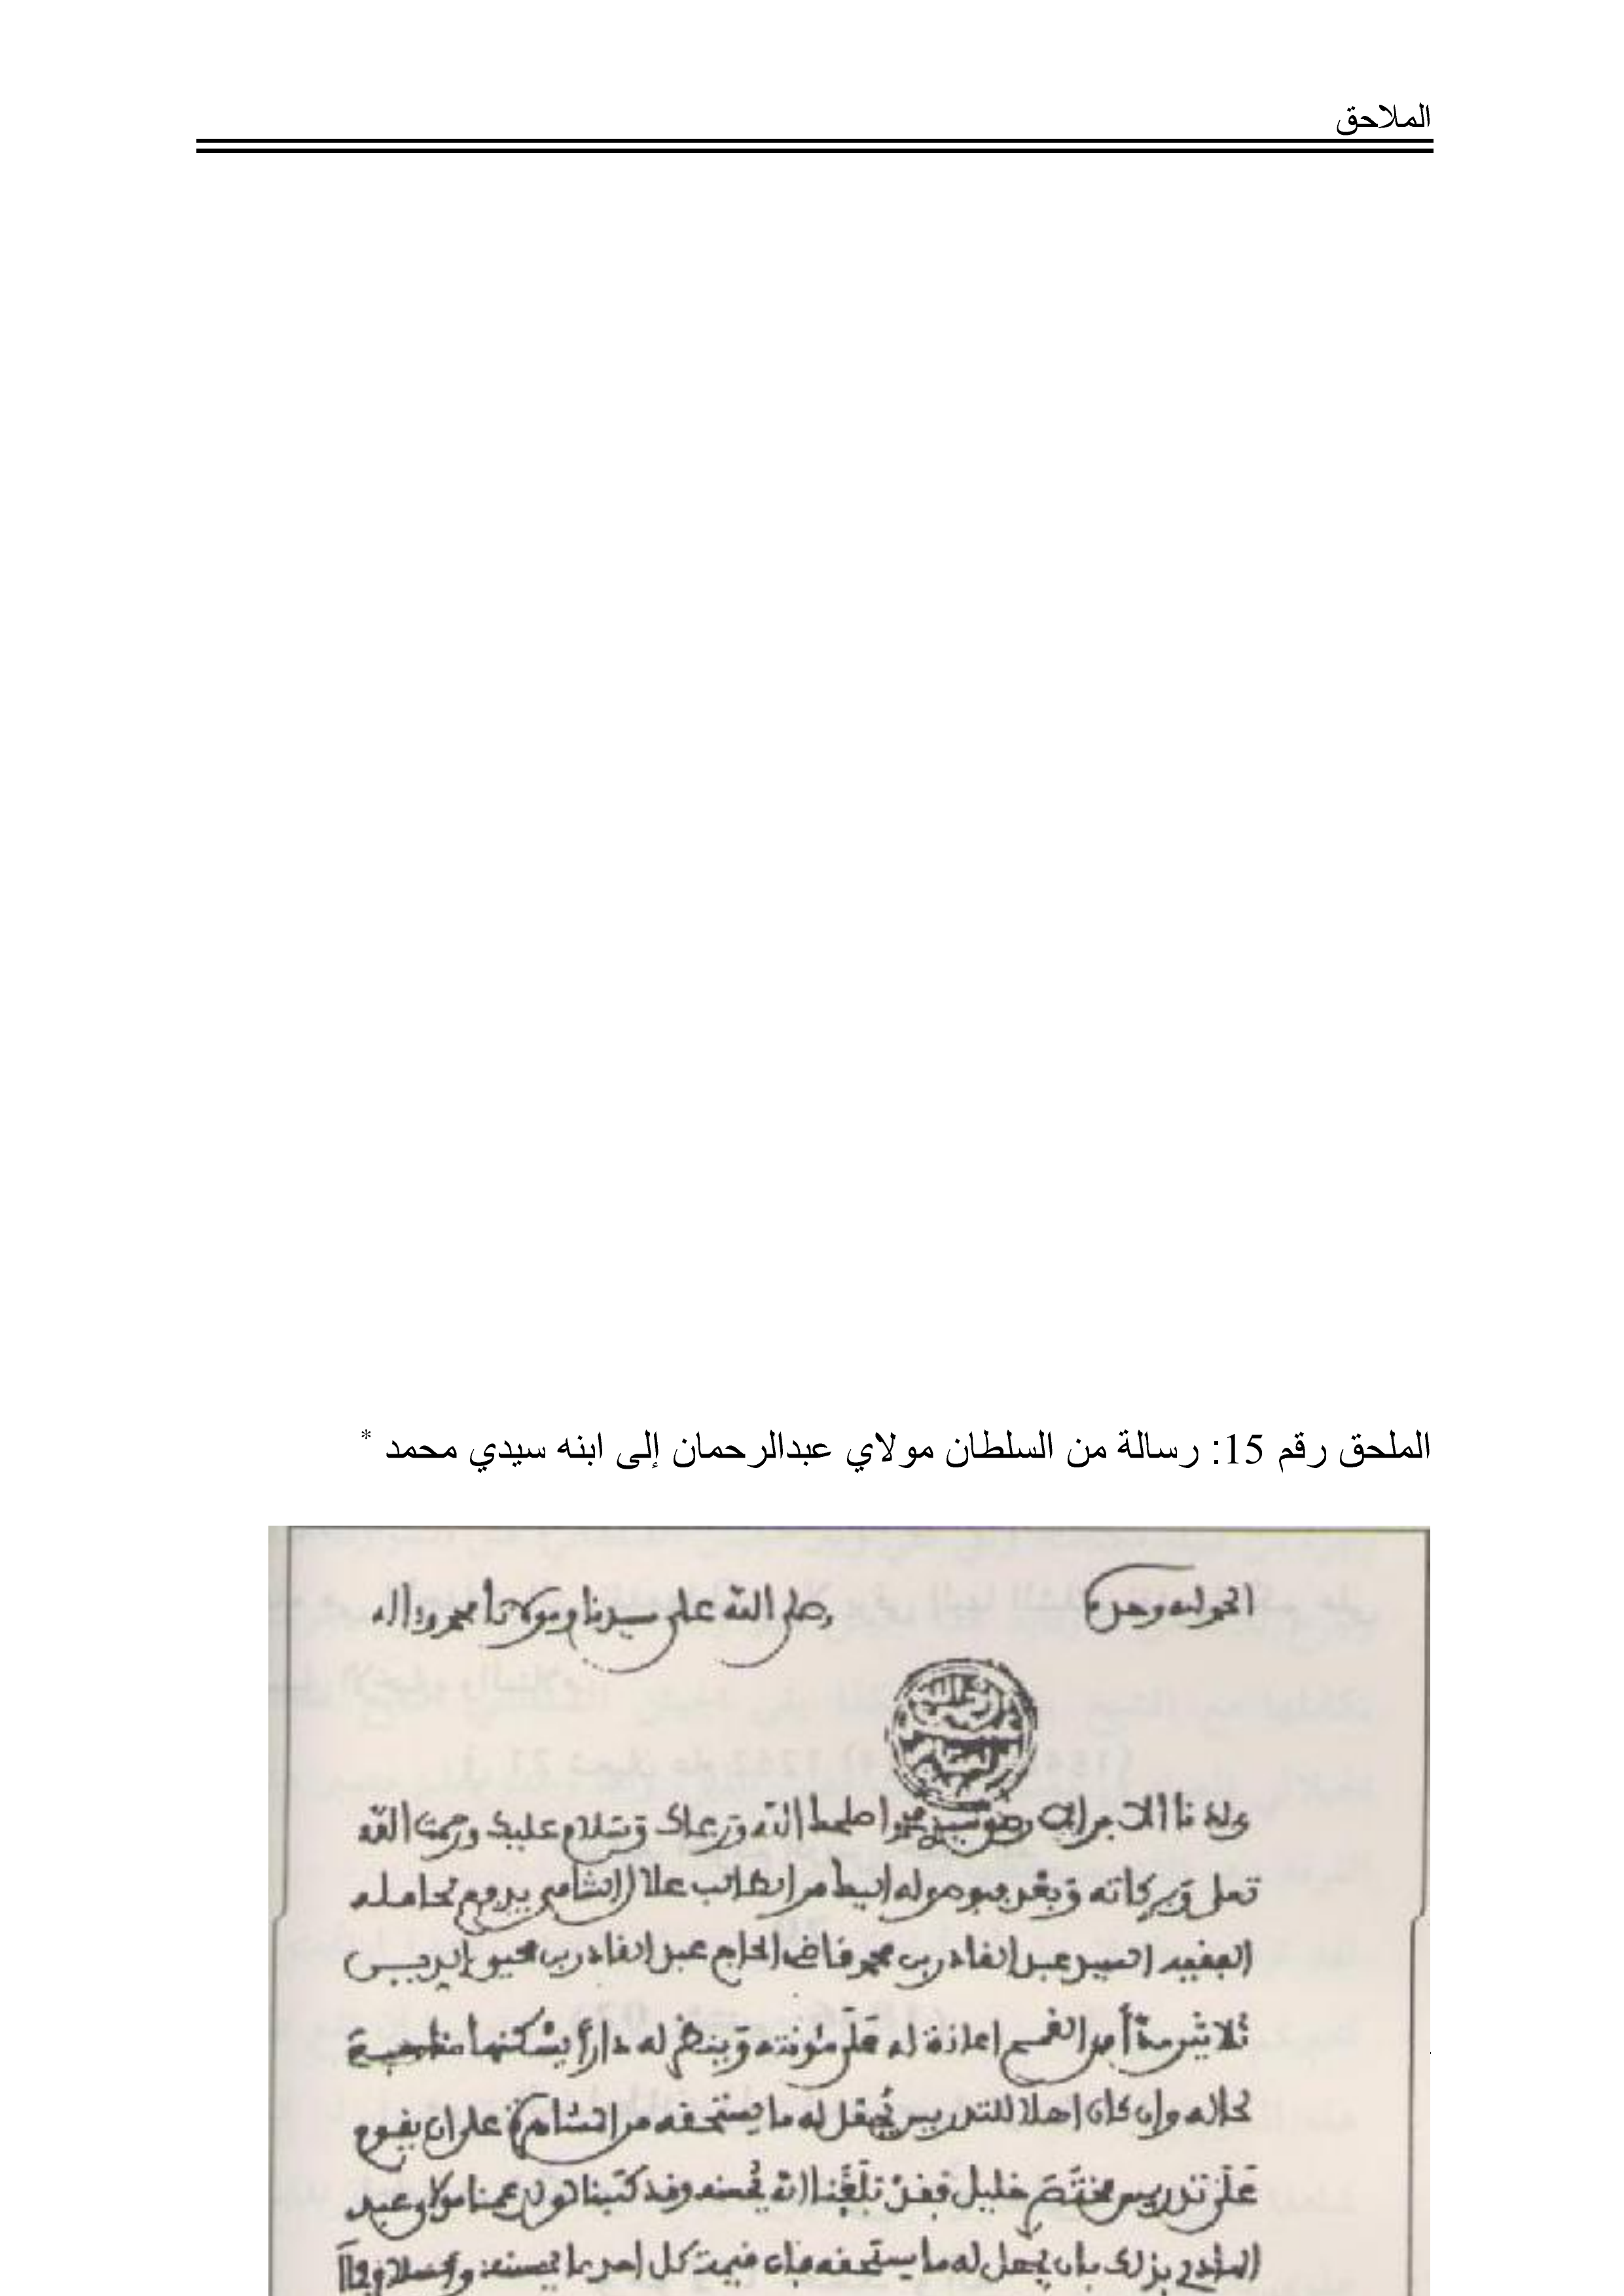 الملاحق
الملحق رقم 15: رسالة من السلطان مولاي عبدالرحمان إلى ابنه سيدي محمد *
الحمد لله وحده
وصلى الله على سيدنا ومولانا محمد واله
ولدنا الابر الارضى سيدي محمد اصلحك الله ورعاك وسلام عليك ورحمت الله
تعلى وبركاته وبعد فبوصوله اليك مر الطالب علال الشامي يدفع لحامله
الفقيه السيد عبد القادر بن محمد قاضي الحاج عبد القادر بن محيي الدين
ثلاثين مدا من القمح اعانة له على مؤنته وينظر له دارا يسكنها مناسبة
لحاله وان كان اهلا للتدريس يجعل له ما يستحقه من على ان يقوم
على تدريس مختصر خليل فقد بلغنا انه يحسنه وقد كتبنا لولد عمنا مولاي عبد
الهادي بذلك بان يجعل له ما يستحقه فان قيمة كل امرء ما يحسنه